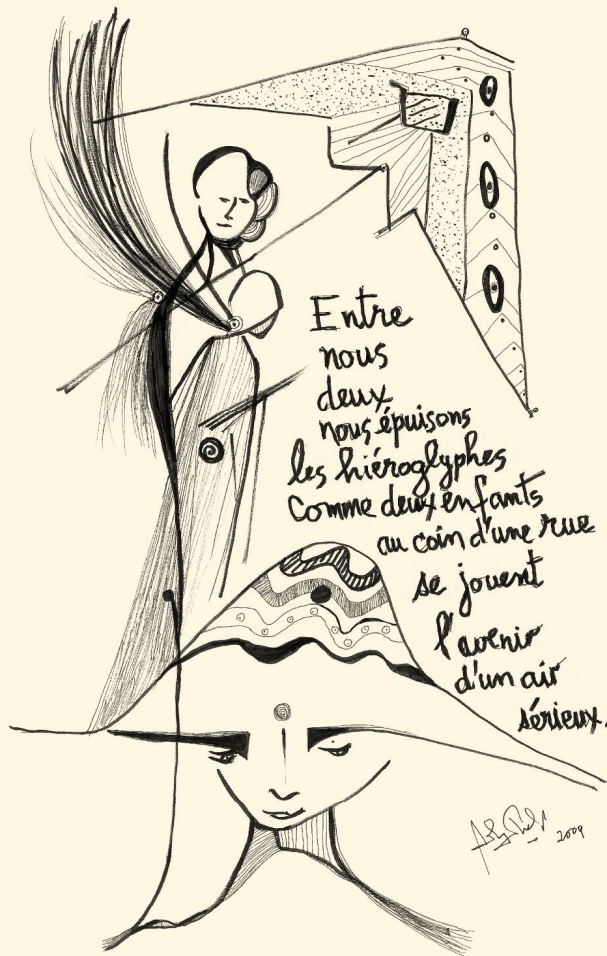 Entre
nous
deux
nous épuisons
les hiéroglyphes
Comme deux enfants
au coin d'une rue
se jouent
l'avenir
d'un air
sérieux.
2009